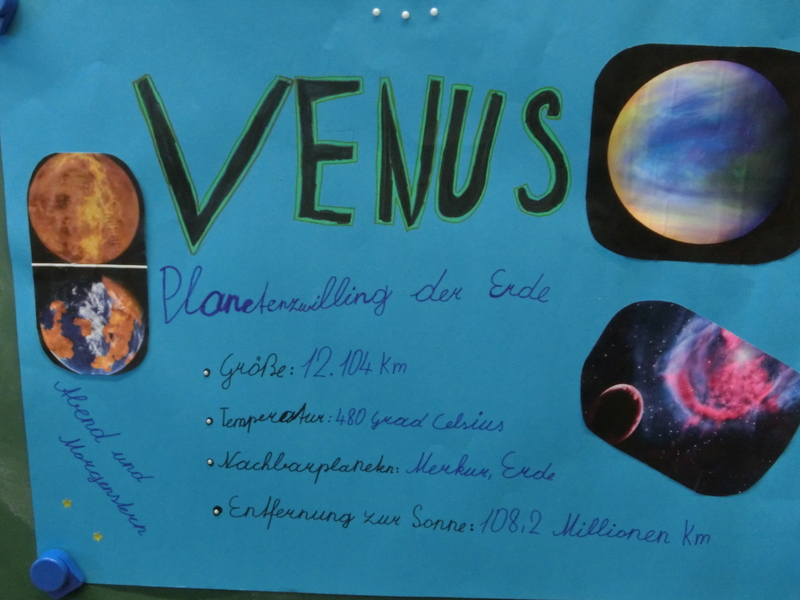 VENUS
Planetenzwilling der Erde
• Größe: 12.104 Km
• Temperatur: 480 Grad Celsius
• Nachbarplaneten: Merkur, Erde
• Entfernung zur Sonne: 108,2 Millionen Km
Abend und
Morgenstern